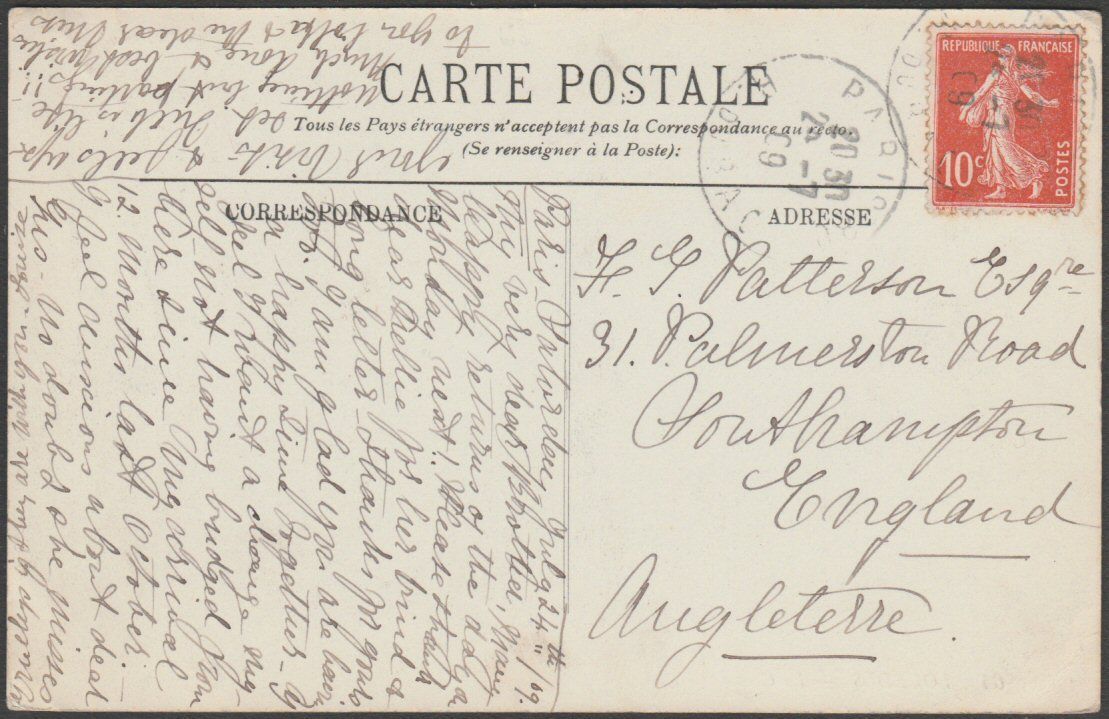 CARTE POSTALE
Tous les Pays étrangers n'acceptent pas la Correspondance au recto.
(Se renseigner à la Poste):
CORRESPONDANCE
ADRESSE
REPUBLIQUE FRANÇAISE
10c
POSTES
PARIS
20 30
24 -7
09
F. G. Patterson Esqre
31. Palmerston Road
Southampton
England
Angleterre.
Paris Saturday July 24th /09.
My very dear Brother, Many
happy returns of the day
Monday next! Please thank
dear Nellie for her kind &
long letter - thanks M
I am glad you are having
a happy time together - I
feel I want a change my
self not having budged from
here since my arrival
12 months last October
I feel anxious about dear
- No doubt she misses
your visits - & feels
Life is
nothing but partings!!
Much love & best wishes
to you both & the dear